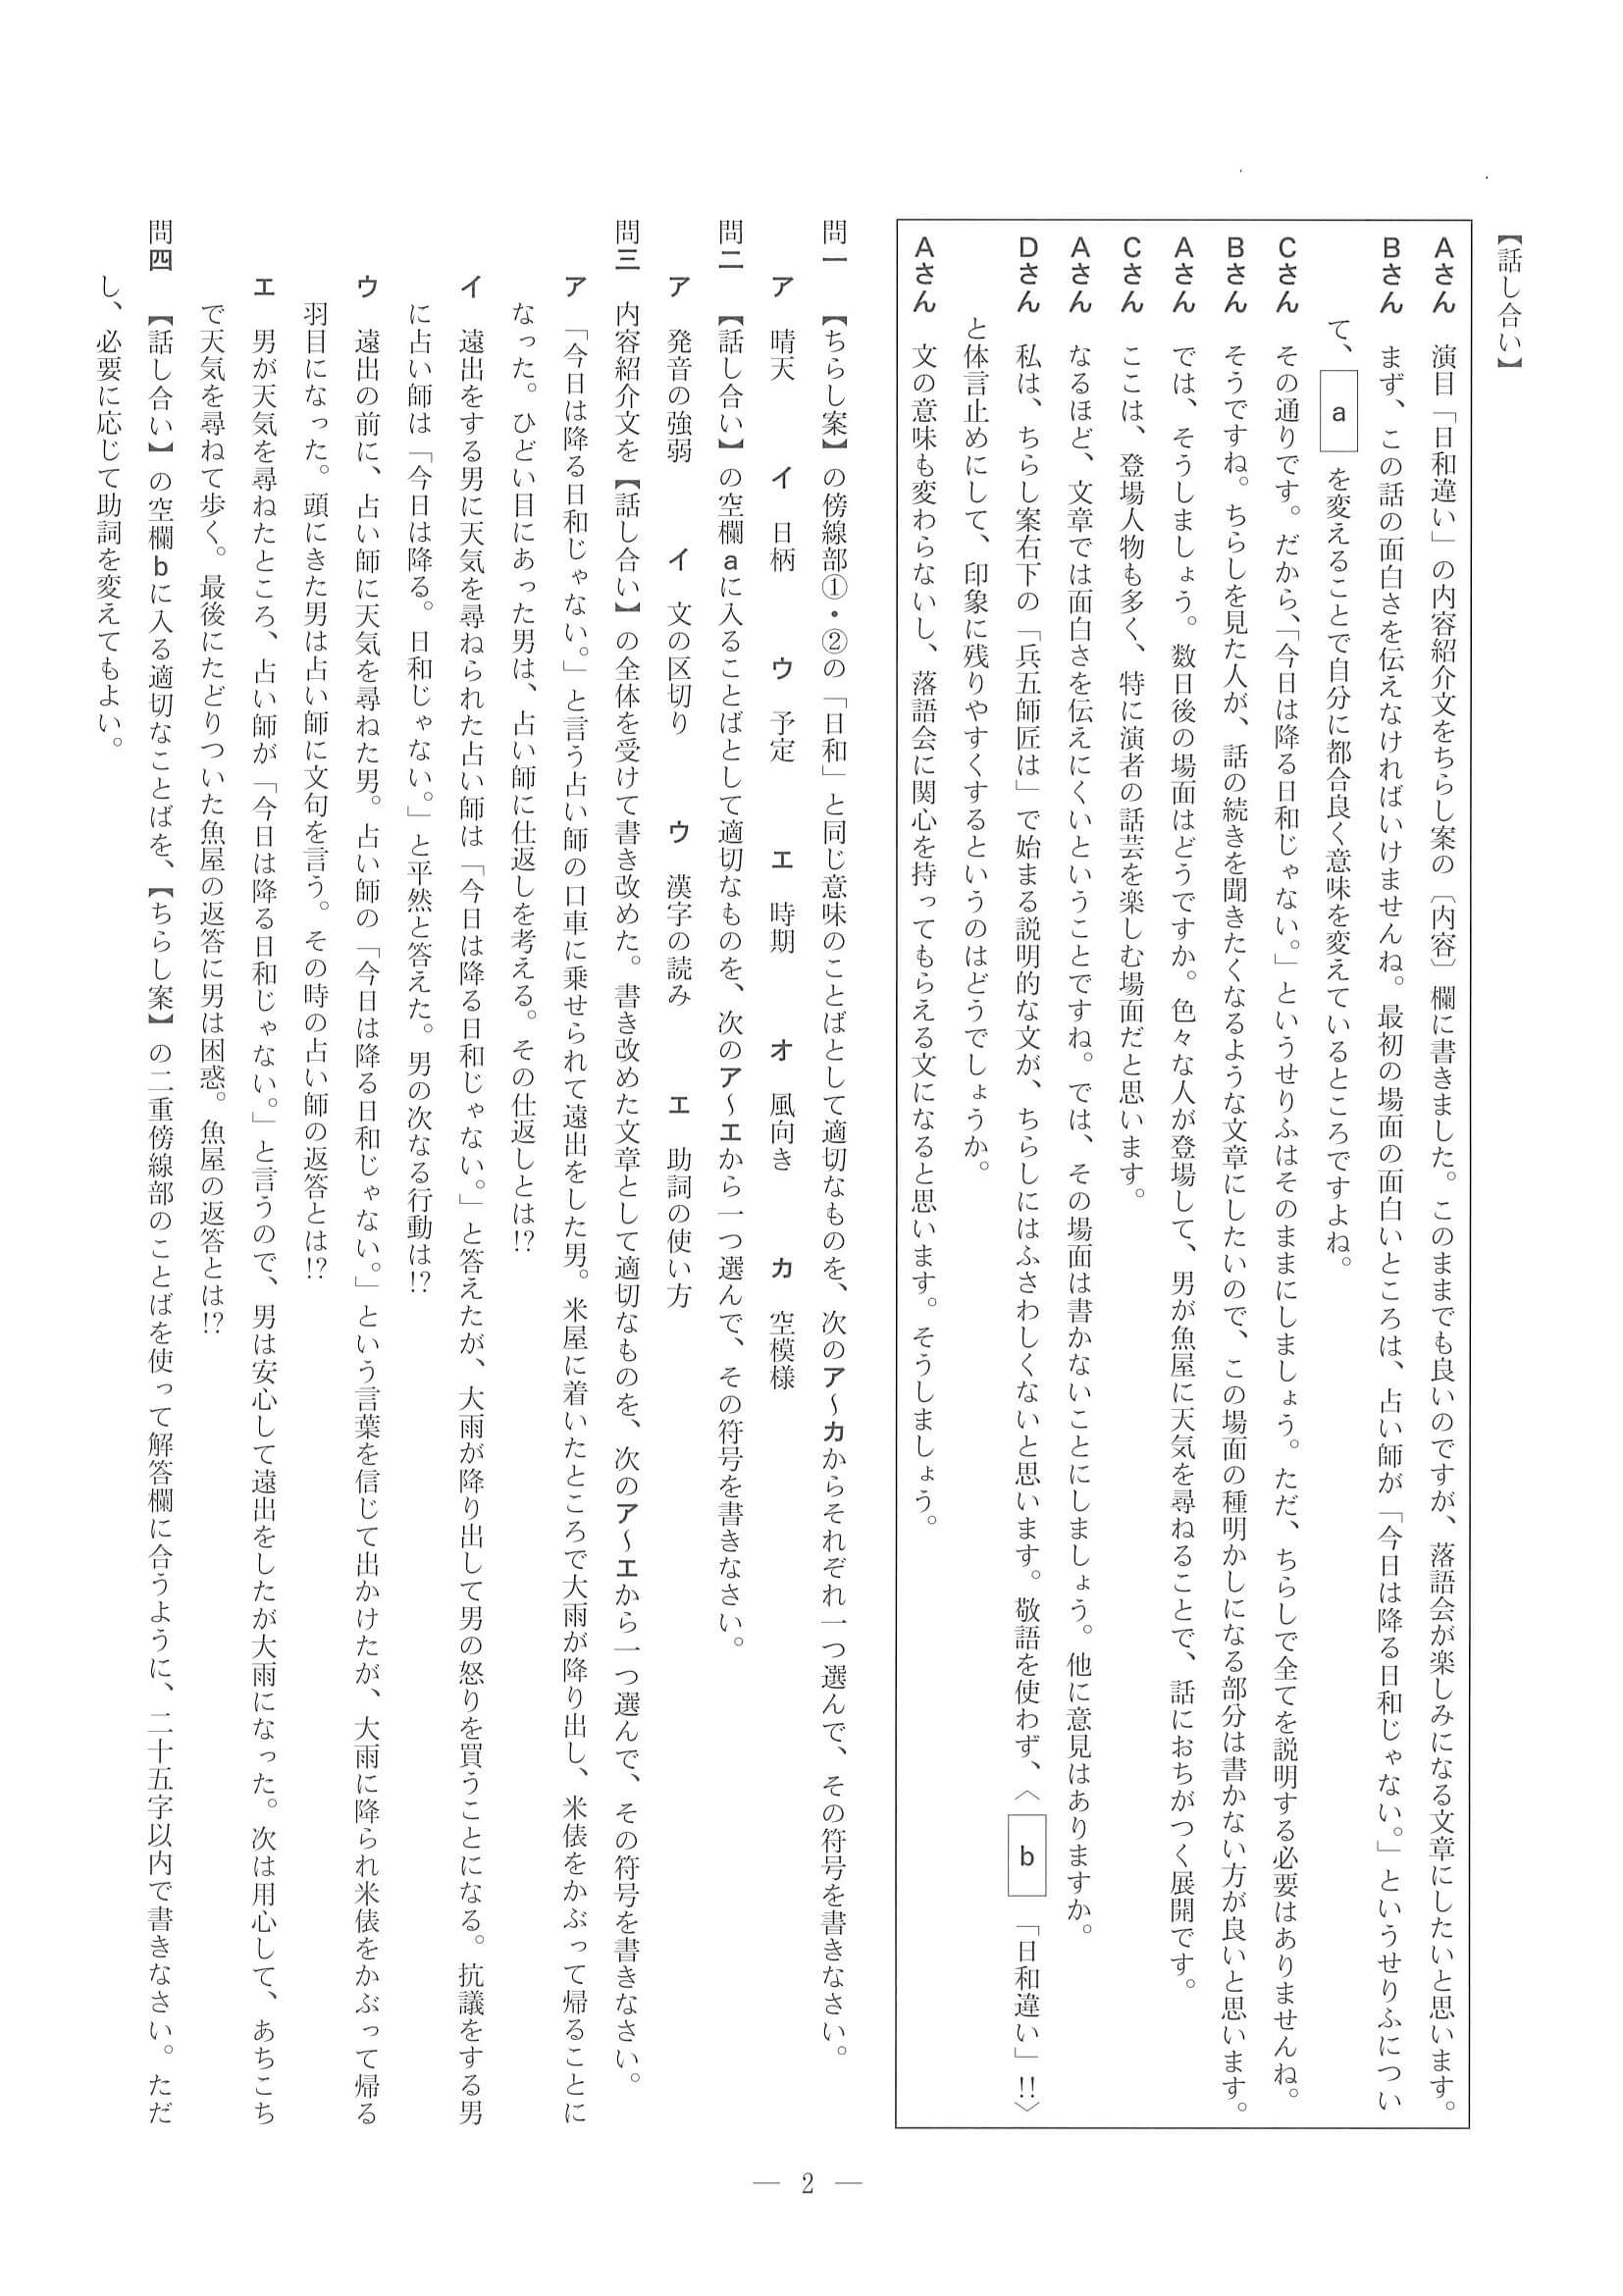 【話し合い】
Aさん　演目「日和違い」の内容紹介文をちらし案の〔内容〕欄に書きました。このままでも良いのですが、落語会が楽しみになる文章にしたいと思います。
Bさん　まず、この話の面白さを伝えなければいけませんね。最初の場面の面白いところは、占い師が「今日は降る日和じゃない。」というせりふについ
て、aを変えることで自分に都合良く意味を変えているところですよね。
Cさん　その通りです。だから、「今日は降る日和じゃない。」というせりふはそのままにしましょう。ただ、ちらしで全てを説明する必要はありませんね。
Bさん　そうですね。ちらしを見た人が、話の続きを聞きたくなるような文章にしたいので、この場面の種明かしになる部分は書かない方が良いと思います。
Aさん　では、そうしましょう。数日後の場面はどうですか。色々な人が登場して、男が魚屋に天気を尋ねることで、話におちがつく展開です。
Cさん　ここは、登場人物も多く、特に演者の話芸を楽しむ場面だと思います。
Aさん　なるほど、文章では面白さを伝えにくいということですね。では、その場面は書かないことにしましょう。他に意見はありますか。
Dさん　私は、ちらし案右下の「兵五師匠は」で始まる説明的な文が、ちらしにはふさわしくないと思います。敬語を使わず、〈b「日和違い」!!〉
と体言止めにして、印象に残りやすくするというのはどうでしょうか。
Aさん　文の意味も変わらないし、落語会に関心を持ってもらえる文になると思います。そうしましょう。
問一　【ちらし案】の傍線部①・②の「日和」と同じ意味のことばとして適切なものを、次のア～カからそれぞれ一つ選んで、その符号を書きなさい。
ア　晴天　イ　日柄　ウ　予定　エ　時期　オ　風向き　カ　空模様
問二　【話し合い】の空欄aに入ることばとして適切なものを、次のア～エから一つ選んで、その符号を書きなさい。
ア　発音の強弱　イ　文の区切り　ウ　漢字の読み　エ　助詞の使い方
問三　内容紹介文を【話し合い】の全体を受けて書き改めた。書き改めた文章として適切なものを、次のア～エから一つ選んで、その符号を書きなさい。
ア　「今日は降る日和じゃない。」と言う占い師の口車に乗せられて遠出をした男。米屋に着いたところで大雨が降り出し、米俵をかぶって帰ることに
なった。ひどい目にあった男は、占い師に仕返しを考える。その仕返しとは!?
イ　遠出をする男に天気を尋ねられた占い師は「今日は降る日和じゃない。」と答えたが、大雨が降り出して男の怒りを買うことになる。抗議をする男
に占い師は「今日は降る。日和じゃない。」と平然と答えた。男の次なる行動は!?
ウ　遠出の前に、占い師に天気を尋ねた男。占い師の「今日は降る日和じゃない。」という言葉を信じて出かけたが、大雨に降られ米俵をかぶって帰る
羽目になった。頭にきた男は占い師に文句を言う。その時の占い師の返答とは!?
エ　男が天気を尋ねたところ、占い師が「今日は降る日和じゃない。」と言うので、男は安心して遠出をしたが大雨になった。次は用心して、あちこち
で天気を尋ねて歩く。最後にたどりついた魚屋の返答に男は困惑。魚屋の返答とは!?
問四　【話し合い】の空欄bに入る適切なことばを、【ちらし案】の二重傍線部のことばを使って解答欄に合うように、二十五字以内で書きなさい。ただ
し、必要に応じて助詞を変えてもよい。
— 2 —